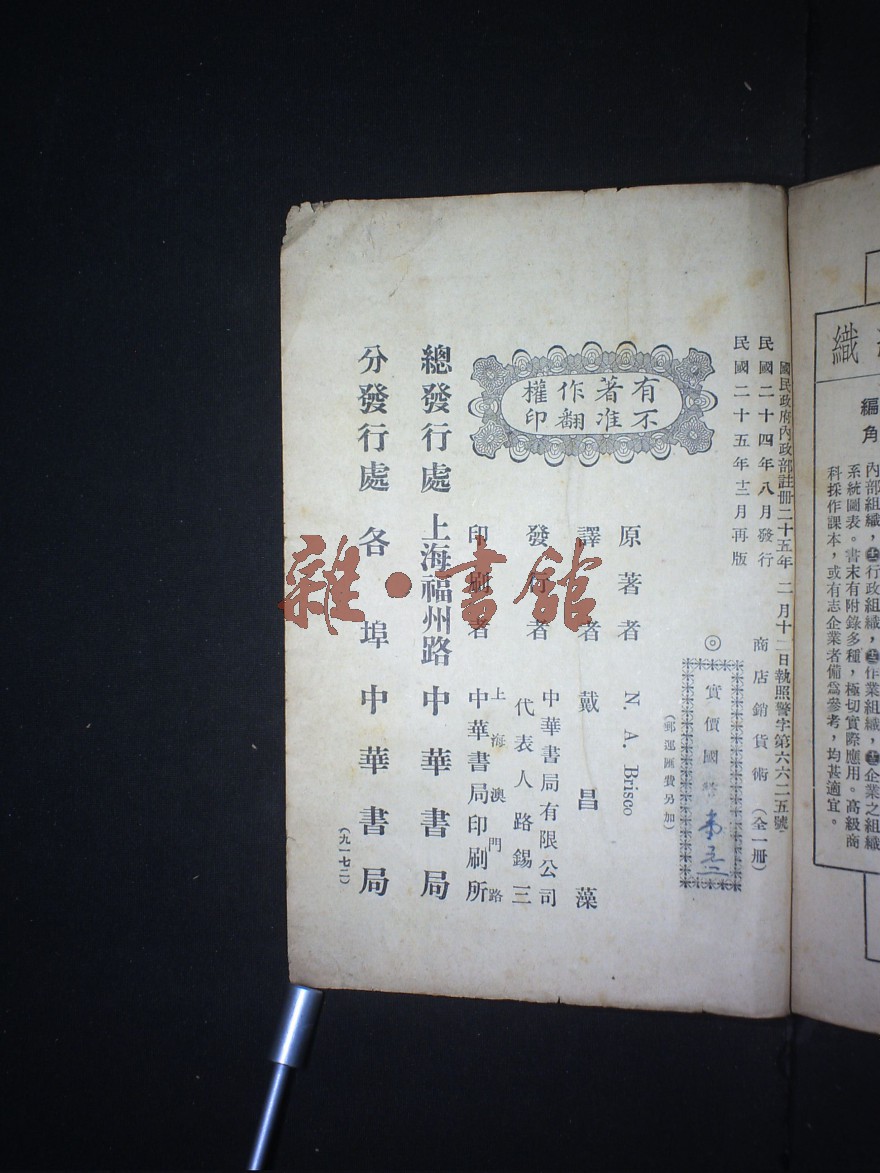 織
編
角
內部組織，㊉行政組織，㊉作業組織，㊉企業之組織
系統圖表。書末有附錄多種，極切實際應用。高級商
科採作課本，或有志企業者備爲參考，均甚適宜。
國民政府內政部註冊二十五年 二月十二日執照警字第六六二五號
民國二十四年八月發行
民國二十五年十二月再版
商店銷貨術（全一册）
◎實價國幣
（郵運匯費另加）
有著作權
不准翻印
原著者 N. A. Brisco
譯者 戴昌藻
發行者 中華書局有限公司
代表人路錫三
印刷者 上海澳門路
中華書局印刷所
總發行處 上海福州路 中華書局
分發行處 各埠 中華書局
（九一七二）
雜·書館